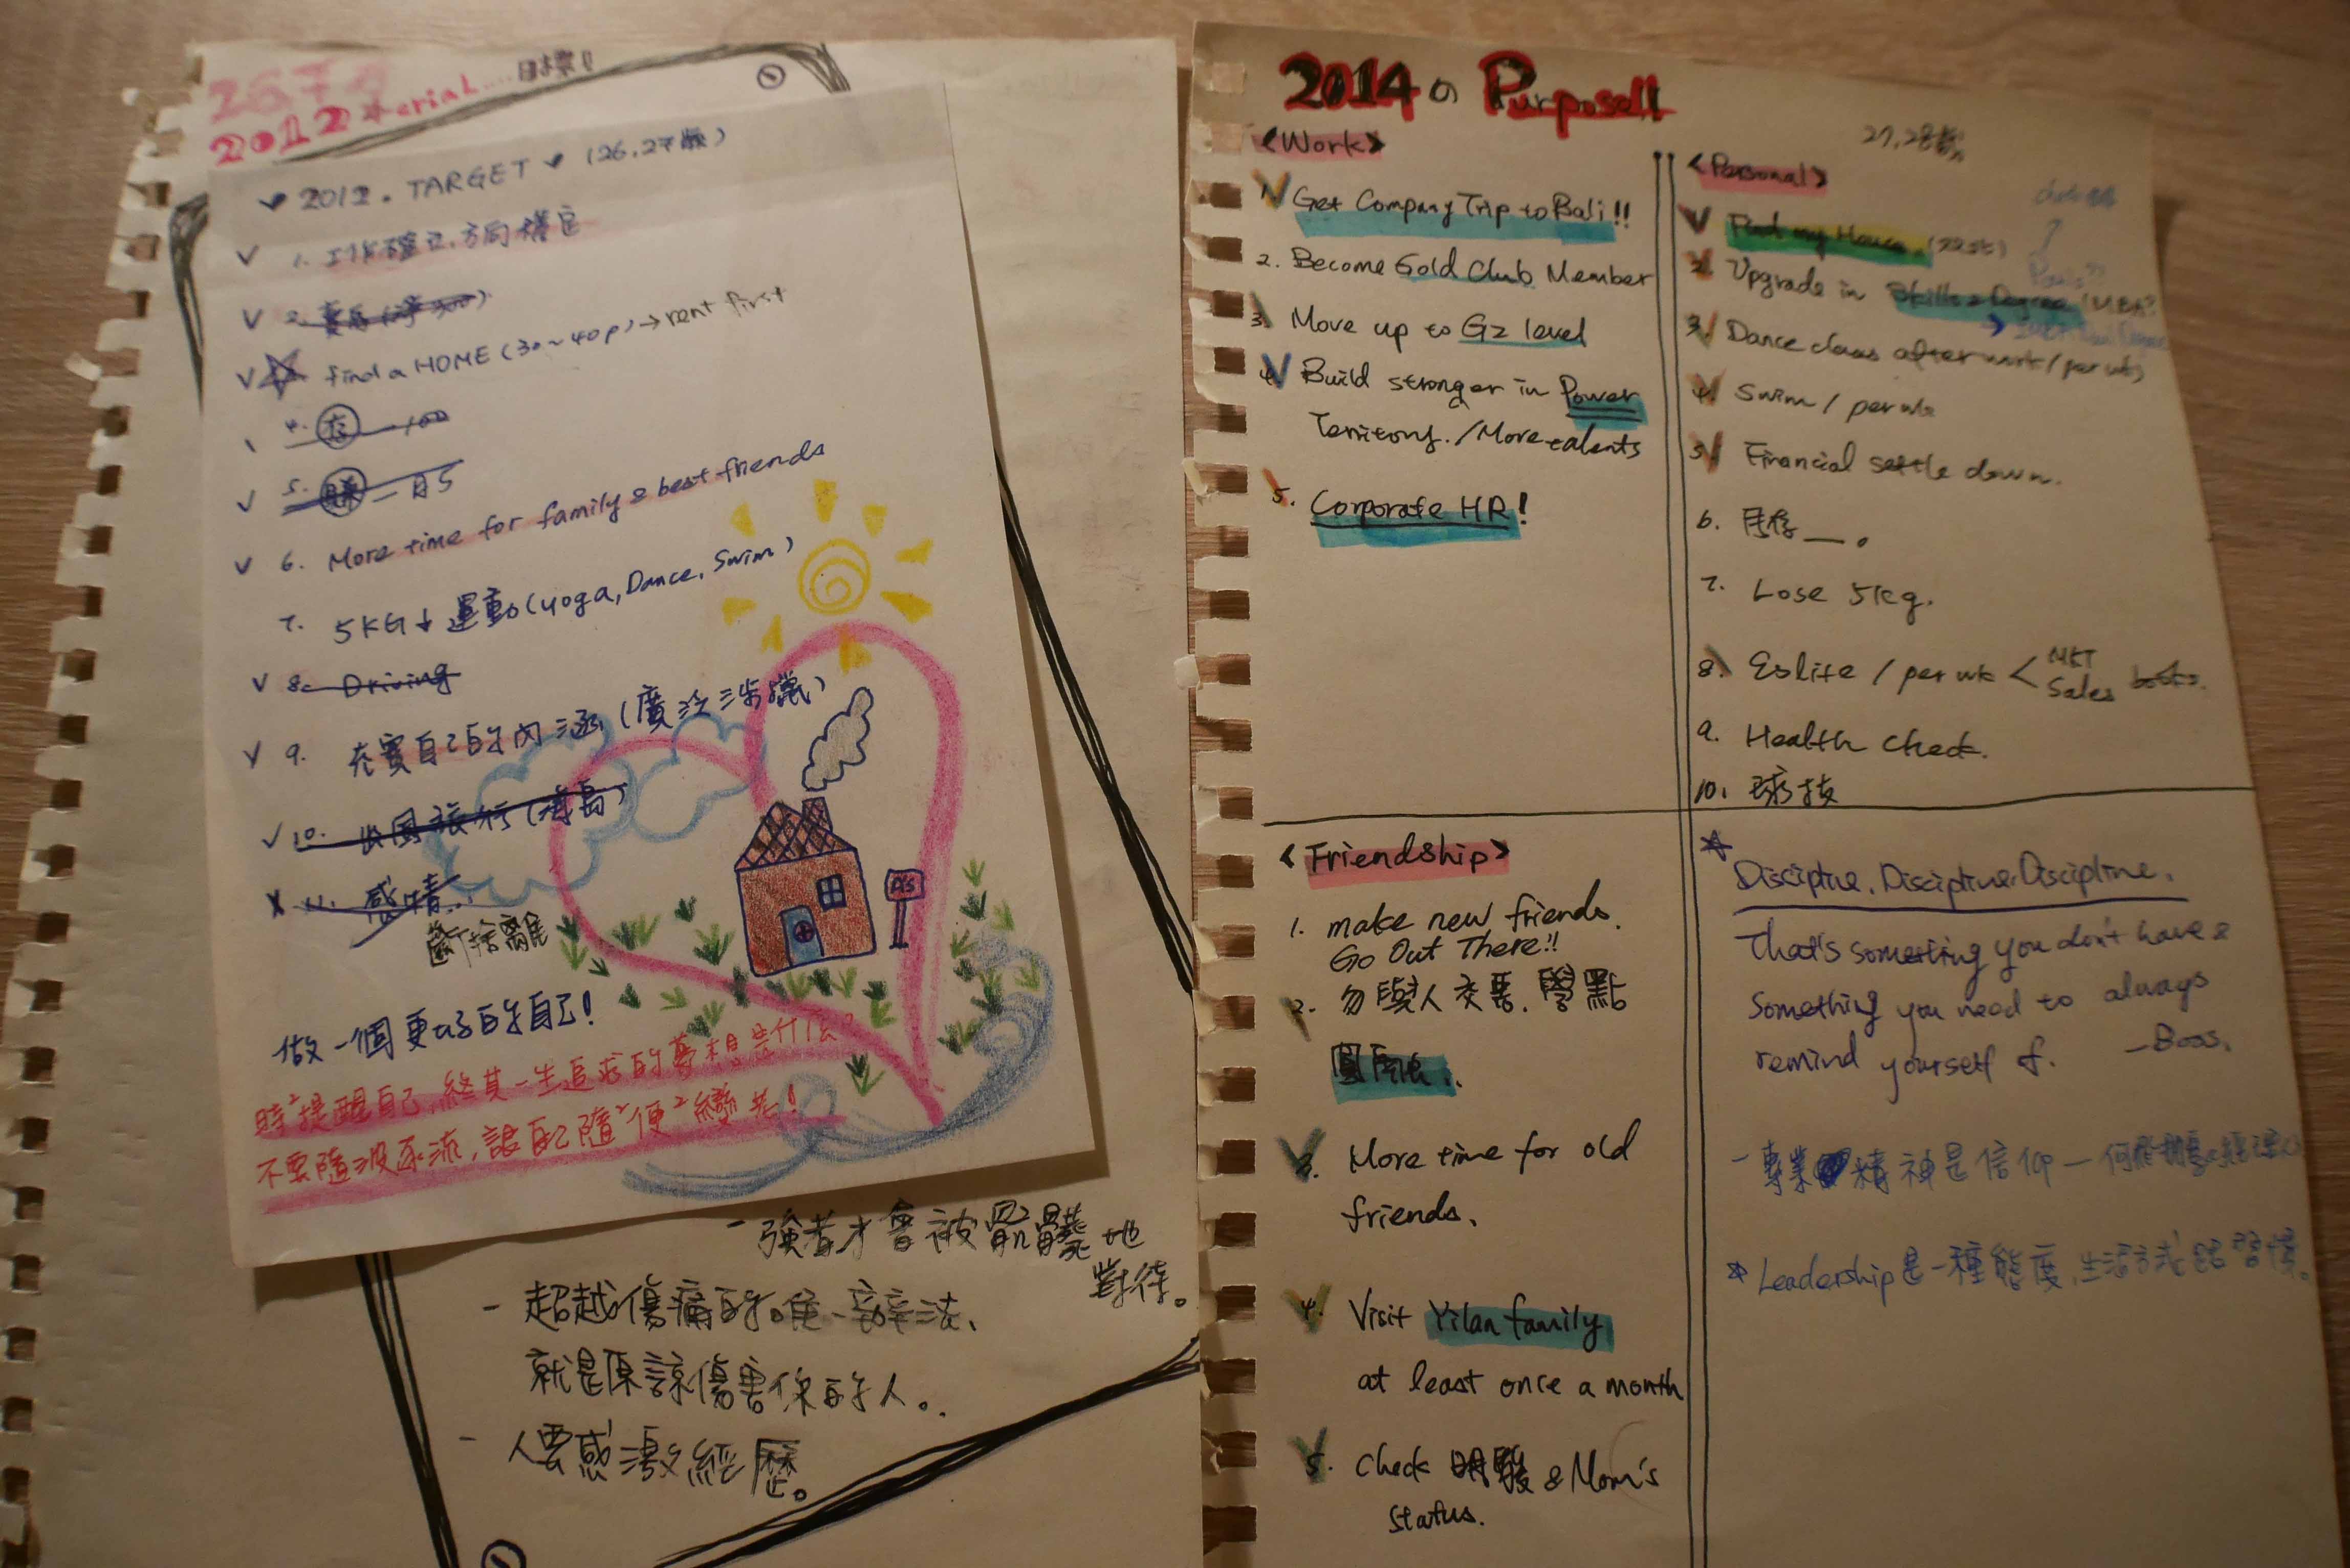 2012
目標!!
✓ 2012. TARGET ✓ (26.27歲)
✓ 1. 工作確立.方向穩定
✓ 2.
✓ ☆ find a HOME (30~40p) → rent first
4. 存 100
✓ 5. 賺
✓ 6. More time for family & best friends
7. 5KG↓ 運動 (yoga, Dance, Swim)
✓ 8. Driving
✓ 9. 充實自己的內涵 (廣泛涉獵)
✓ 10. 出國旅行 (海島)
X 11. 感情..
斷捨離
A's
做一個更好的自己!
時²提醒自己,終其一生追求的夢想是什麼?
不要隨波逐流,讓自己隨²便²變老!
- 強者才會被骯髒地
對待。
- 超越傷痛的唯一辦法、
就是原諒傷害你的人。
- 人要感激經歷。
2014 の Purpose!!
27,28歲
<Work>
1. Get Company Trip to Bali!!
2. Become Gold Club Member
3. Move up to G2 level
4. Build stronger in Power
Territory. / More talents
5. Corporate HR!
<Personal>
Find my House.
2. Upgrade in Skills & Degree (MBA?
3. Dance class after work / per wk)
4. Swim / per wk
5. Financial settle down.
6. 月存__。
7. Lose 5kg.
8. Eslite / per wk < MKT
Sales books.
9. Health check.
10. 球技
<Friendship>
1. make new friends.
Go Out There!!
2. 勿與人交惡.學點
圓融..
3. More time for old
friends.
4. Visit Yilan family
at least once a month
5. Check 明駿 & Mom's
status.
☆ Discipline. Discipline. Discipline.
That's something you don't have &
Something you need to always
remind yourself of. - Boss.
- 專業精神是信仰 -
☆ Leadership 是一種態度,生活方式跟習慣。